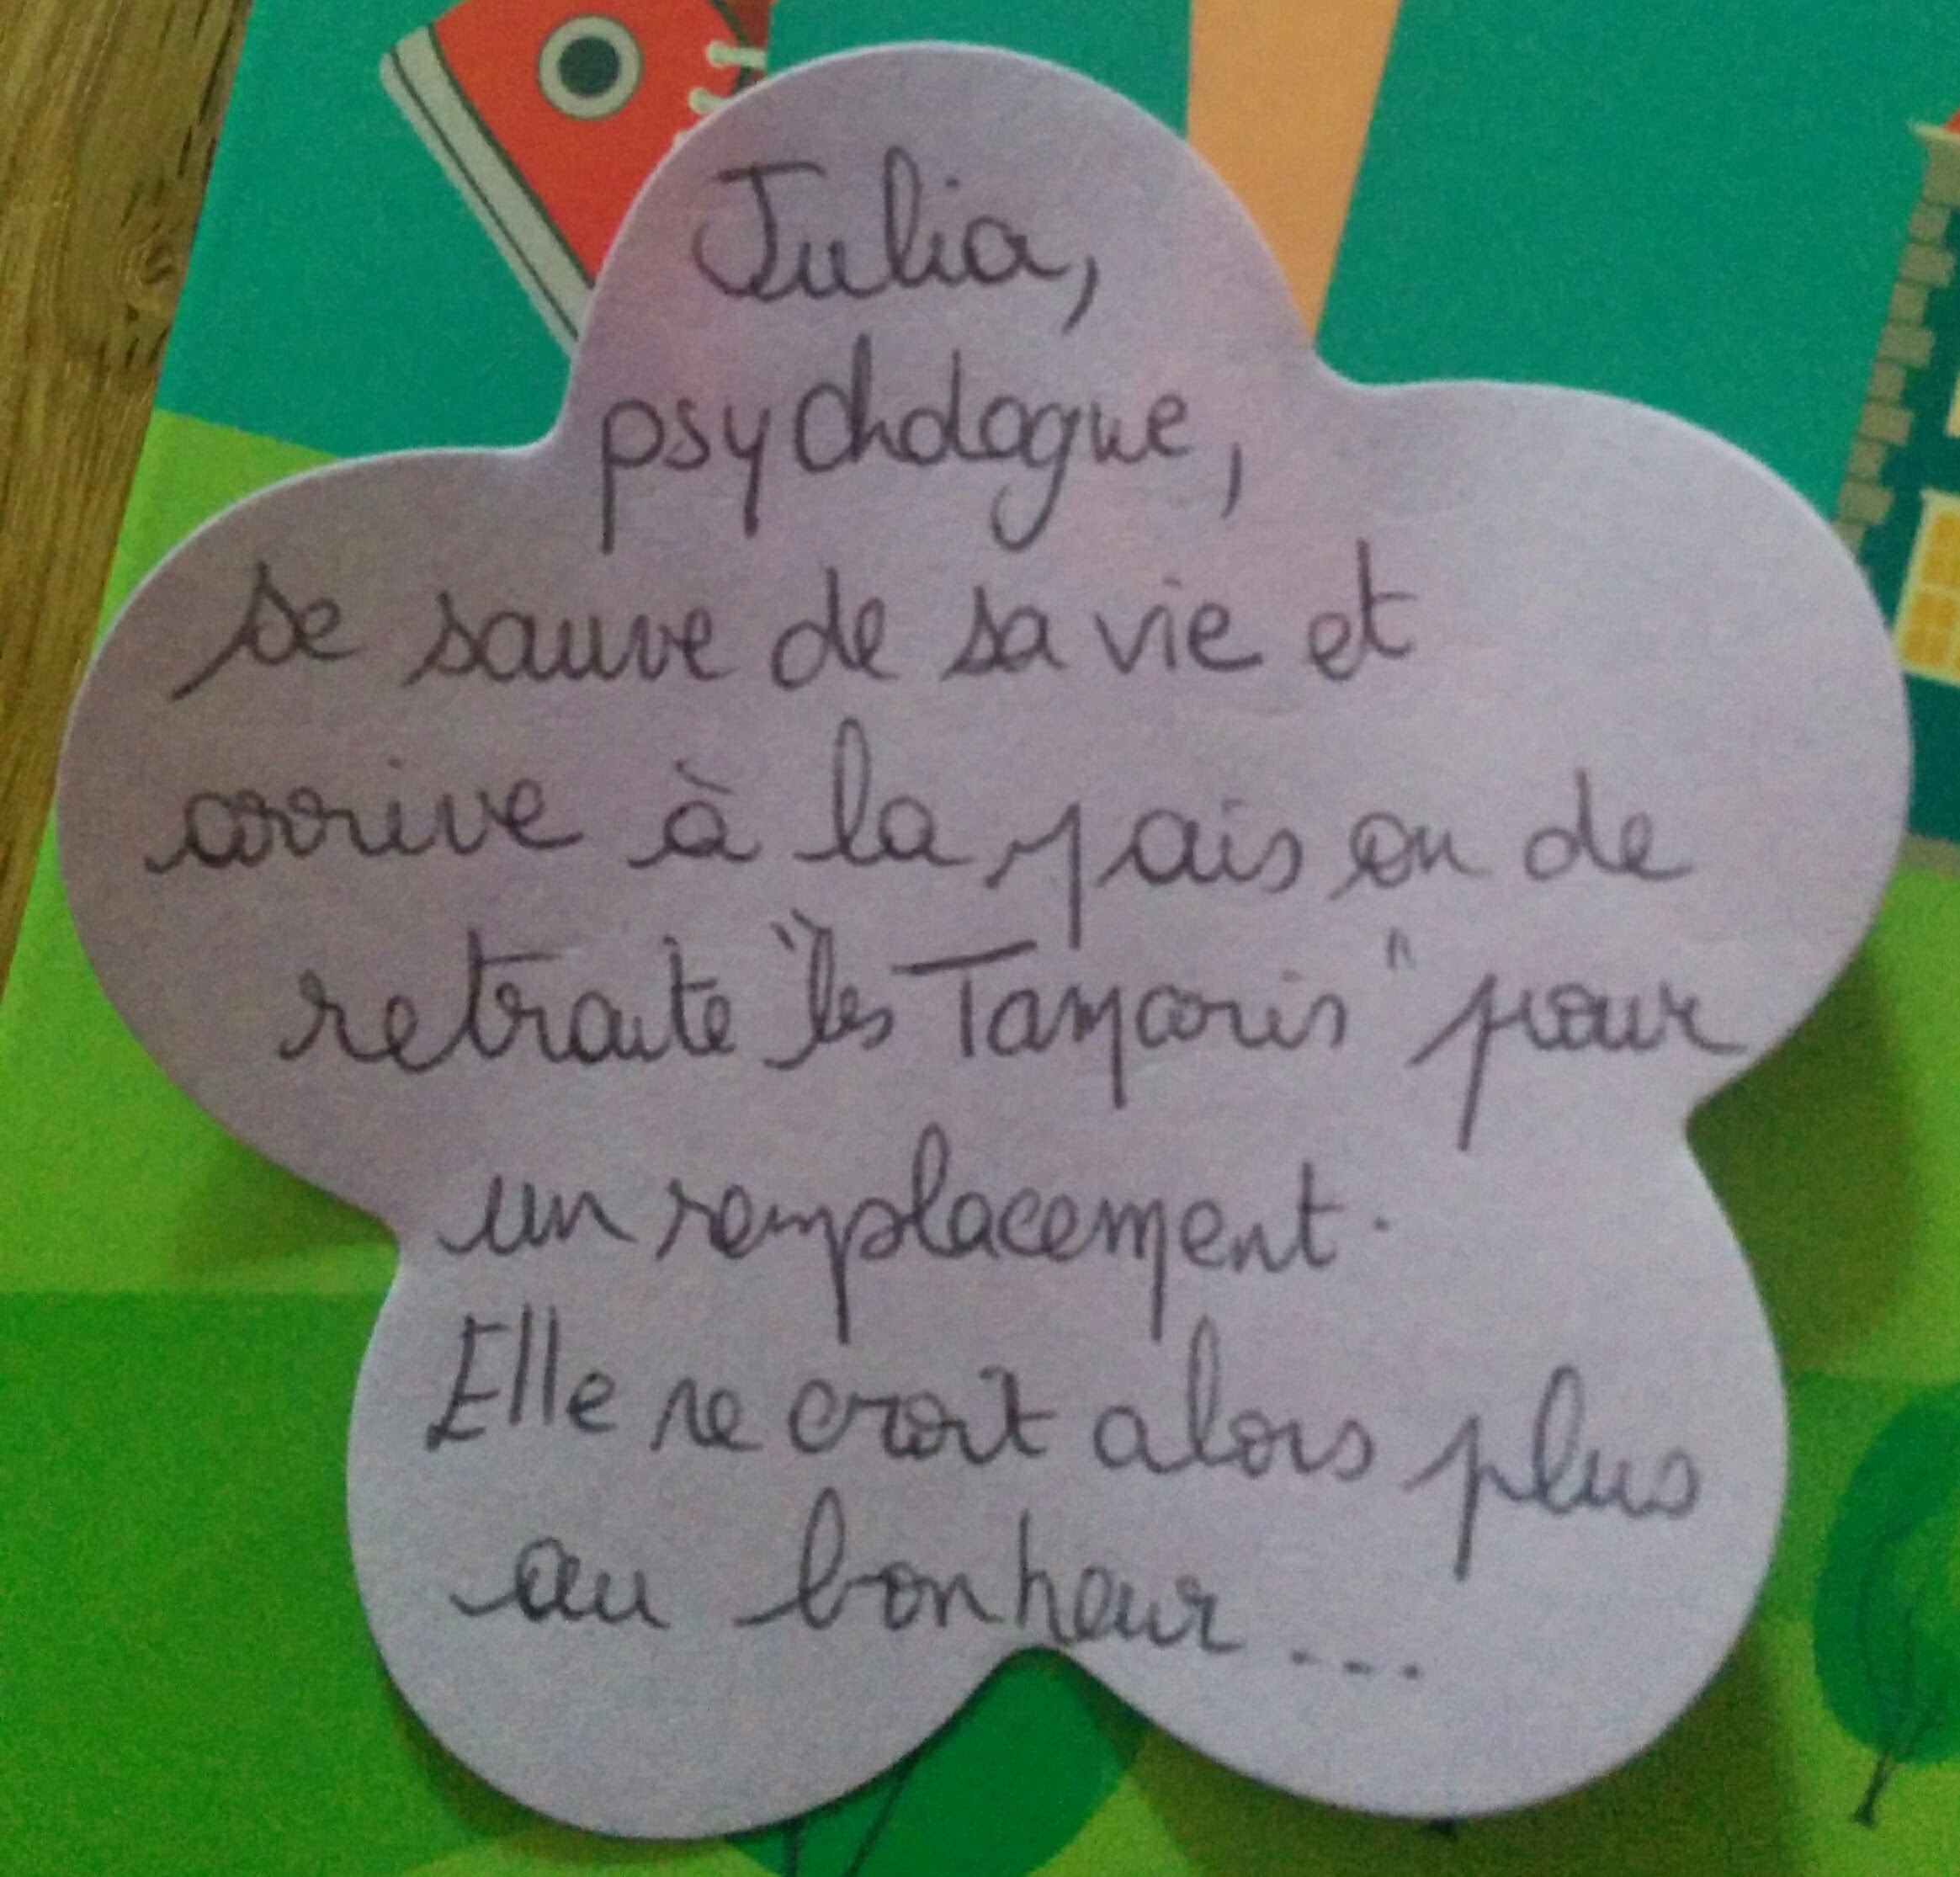 Julia,
psychologue,
se sauve de sa vie et
arrive à la maison de
retraite "les Tamaris" pour
un remplacement.
Elle ne croit alors plus
au bonheur...